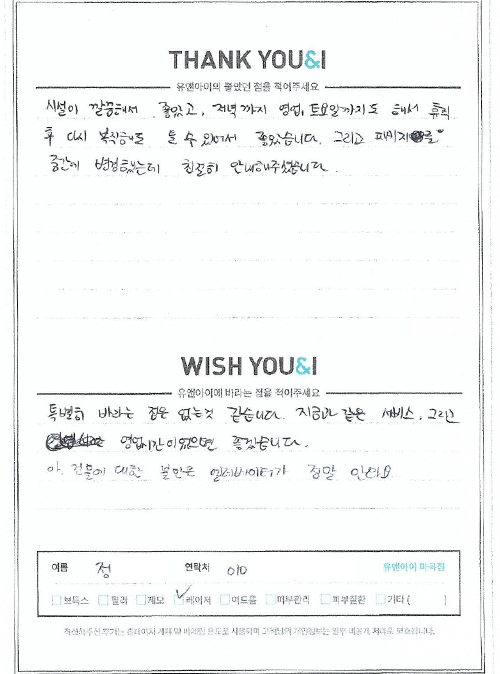 THANK YOU&I
유앤아이의 좋았던 점을 적어주세요
시설이 깔끔해서 좋았고, 저녁까지 영업, 토요일까지도 해서 휴직
후 다시 복직해도 올 수 있어서 좋았습니다. 그리고 패키지를
중간에 변경했는데 친절히 안내해주셨습니다.
WISH YOU&I
유앤아이에 바라는 점을 적어주세요
특별히 바라는 점은 없는것 같습니다. 지금과 같은 서비스, 그리고
영업시간이었으면 좋겠습니다.
아, 건물에 대한 불만은 엘레베이터가 정말 안와요
이름 정 연락처 010 유앤아이 마곡점
보톡스 필러 제모 레이저 여드름 피부관리 피부질환 기타 ( )
작성해주신 후기는 홈페이지 게재 및 마케팅 용도로 사용되며 고객님의 개인정보는 일부 비공개 처리로 보호됩니다.